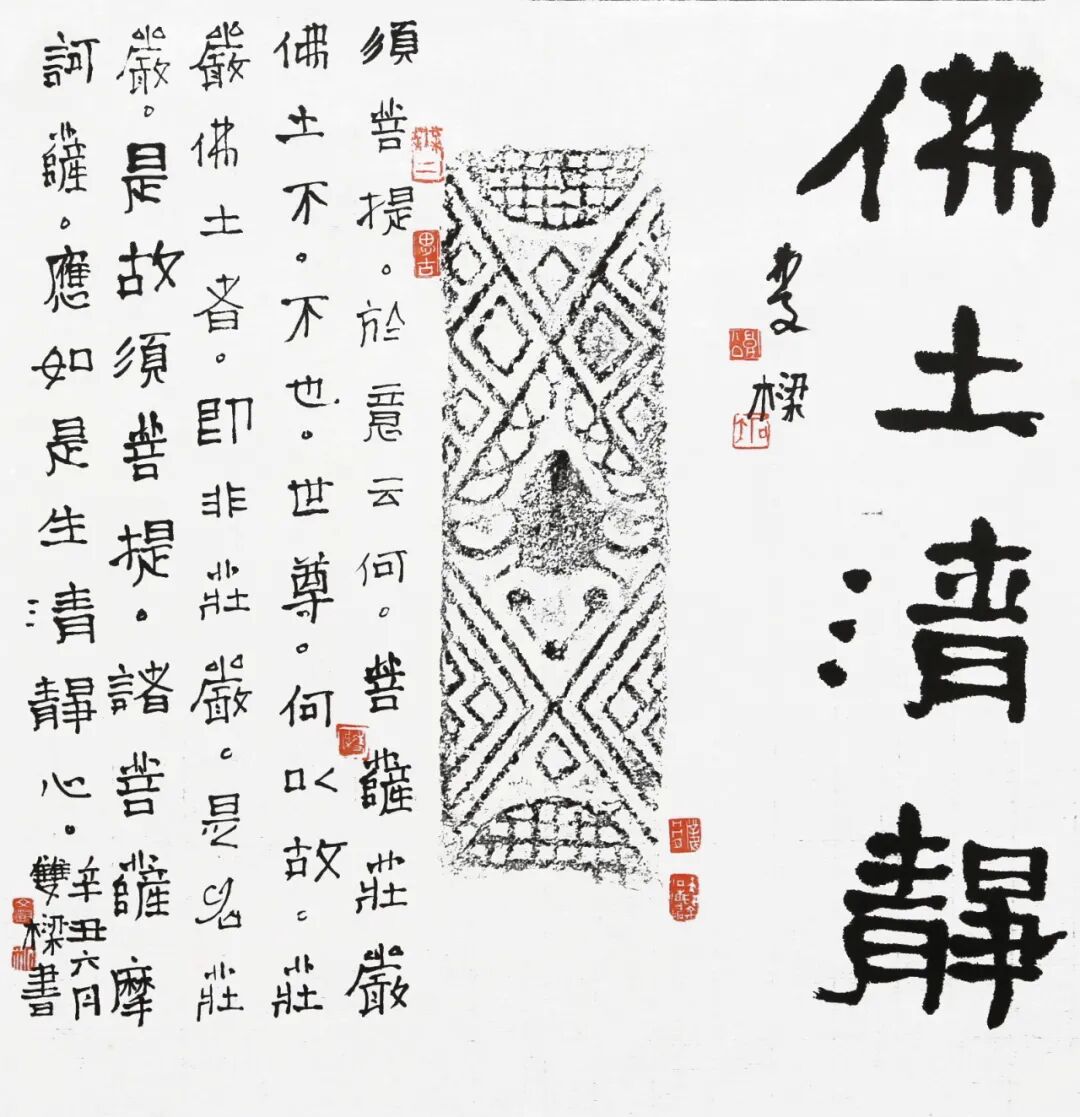 佛土清靜
雙樑
須菩提。於意云何。菩薩莊嚴
佛土不。不也。世尊。何以故。莊
嚴佛土者。即非莊嚴。是名莊
嚴。是故須菩提。諸菩薩摩
訶薩。應如是生清靜心。辛丑六月
雙樑書
思古